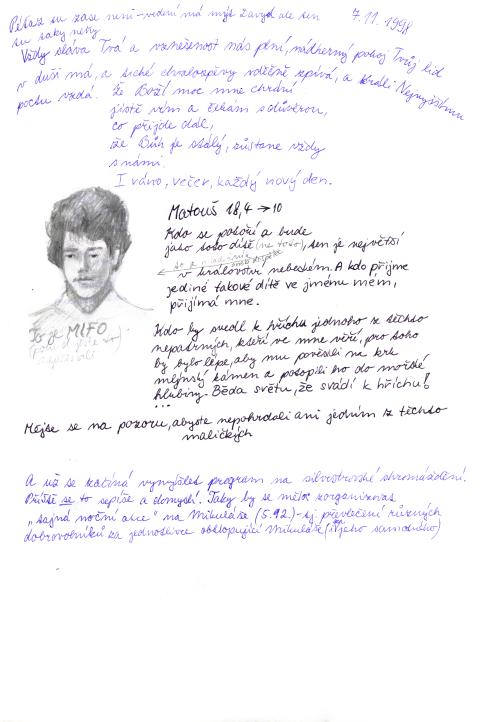 Péťa z su zase není - vedení má mys zavyd ale sen
7.11.1998
su saky neby
Vždy sláva Tvá a vznešenost nás plní, nádherný pokoj Tvůj lid
v duši má, a tiché chvalozpěvy vděčně zpívá, a Králi Nejvyššímu
poctu vzdá. Že Boží moc mne chrání
jistě vím a čekám s důvěrou,
co přijde dál,
že Bůh je stálý, zůstane vždy
s námi.
I ráno, večer, každý nový den.
Matouš 18,4 → 10
Kdo se pokoří a bude
jako toto dítě (ne toto), ten je největší
v království nebeckém. A kdo přijme
jediné takové dítě ve jménu mém,
přijímá mne.
To je MIFO
Kdo by svedl k hříchu jednoho z těchto
nepatrných, kteří ve mne věří, pro toho
by bylo lépe, aby mu pověsili na krk
mlýnský kámen a potopili ho do mořské
hlubiny. Běda světu, že svádí k hříchu!
...
Mějte se na pozoru, abyste nepohrdali ani jedním z těchto
maličkých
A už se začíná vymýšlet program na silvestrovské shromáždění.
Příště se to sepíše a domyslí. Taky by se mělo zorganizovat
„tajná noční akce" na Mikuláše (5.12.) - tj převlečení různých
dobrovolníků za jednotlivce obklopující Mikuláše (i jeho samotného)